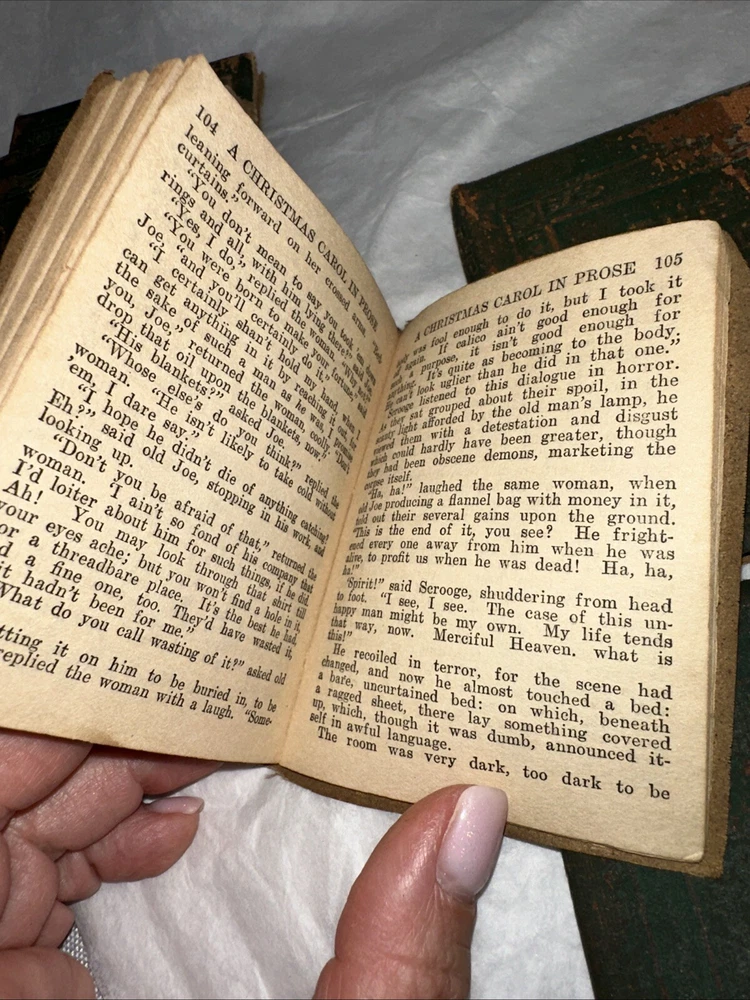 104 A CHRISTMAS CAROL IN PROSE
leaning forward on her crossed arms. "Bed
curtains."
"You don't mean to say you took
rings and all, with him lying there?" said
"Yes, I do," replied the woman. "Why not?"
"You were born to make your fortune," said
Joe, "and you'll certainly do it."
"I certainly shan't hold my hand, when
can get anything in it by reaching it out, for
the sake of such a man as he was, I promise
you, Joe," returned the woman, coolly. "Don't
drop that oil upon the blankets, now."
"His blankets?" asked Joe.
"Whose else's do you think?" replied the
woman. "He isn't likely to take cold without
em, I dare say."
"I hope he didn't die of anything catching?
Eh?" said old Joe, stopping in his work, and
looking up.
"Don't you be afraid of that," returned the
woman. "I ain't so fond of his company that
I'd loiter about him for such things, if he did.
Ah! You may look through that shirt till
your eyes ache; but you won't find a hole in it,
or a threadbare place. It's the best he had,
a fine one, too. They'd have wasted it,
it hadn't been for me."
What do you call wasting of it?" asked old
tting it on him to be buried in, to be
replied the woman with a laugh. "Some-
A CHRISTMAS CAROL IN PROSE 105
was fool enough to do it, but I took it
again. If calico ain't good enough for
purpose, it isn't good enough for
anything. It's quite as becoming to the body.
can't look uglier than he did in that one."
Scrooge listened to this dialogue in horror.
As they sat grouped about their spoil, in the
scanty light afforded by the old man's lamp, he
viewed them with a detestation and disgust
which could hardly have been greater, though
they had been obscene demons, marketing the
corpse itself.
"Ha, ha!" laughed the same woman, when
old Joe producing a flannel bag with money in it,
told out their several gains upon the ground.
"This is the end of it, you see? He fright-
ened every one away from him when he was
alive, to profit us when he was dead! Ha, ha,
ha!"
"Spirit!" said Scrooge, shuddering from head
to foot. "I see, I see. The case of this un-
happy man might be my own. My life tends
that way, now. Merciful Heaven. what is
this!"
He recoiled in terror, for the scene had
changed, and now he almost touched a bed:
a bare, uncurtained bed: on which, beneath
a ragged sheet, there lay something covered
up, which, though it was dumb, announced it-
self in awful language.
The room was very dark, too dark to be